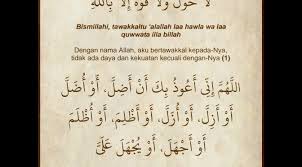 لَا حَوْلَ وَلَا قُوَّةَ إِلَّا بِاللَّهِ
Bismillahi, tawakkaltu 'alallah laa hawla wa laa
quwwata illa billah
Dengan nama Allah, aku bertawakkal kepada-Nya,
tidak ada daya dan kekuatan kecuali dengan-Nya (1)
اللَّهُمَّ إِنِّي أَعُوذُ بِكَ أَنْ أَضِلَّ، أَوْ أُضَلَّ
أَوْ أَزِلَّ، أَوْ أُزَلَّ، أَوْ أَظْلِمَ، أَوْ أُظْلَمَ
أَوْ أَجْهَلَ، أَوْ يُجْهَلَ عَلَيَّ